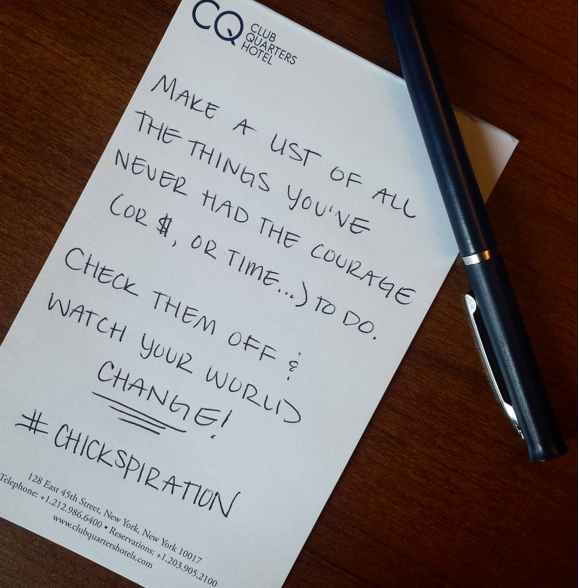 CQ CLUB
QUARTERS
HOTEL
MAKE A LIST OF ALL
THE THINGS YOU'VE
NEVER HAD THE COURAGE
(OR $, OR TIME...) TO DO.
CHECK THEM OFF &
WATCH YOUR WORLD
CHANGE!
# CHICKSPIRATION
128 East 45th Street, New York, New York 10017
Telephone: +1.212.986.6400 • Reservations: +1.203.905.2100
www.clubquartershotels.com